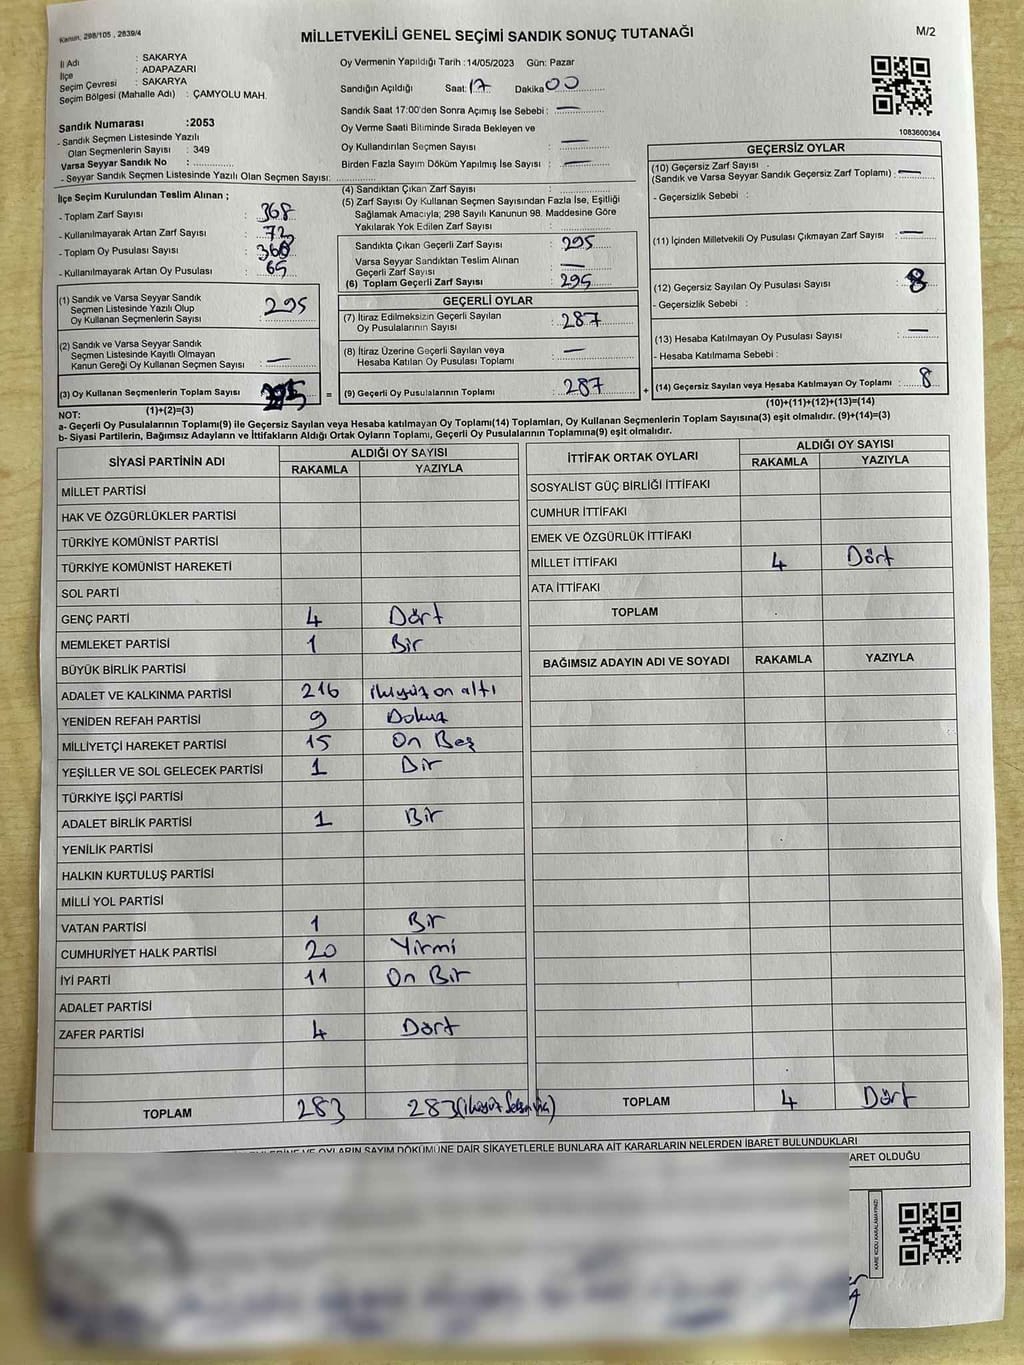 Kanun: 298/105 , 2839/4
MİLLETVEKİLİ GENEL SEÇİMİ SANDIK SONUÇ TUTANAĞI
M/2
İl Adı : SAKARYA
İlçe : ADAPAZARI
Seçim Çevresi : SAKARYA
Seçim Bölgesi (Mahalle Adı) : ÇAMYOLU MAH.
Sandık Numarası :2053
- Sandık Seçmen Listesinde Yazılı
Olan Seçmenlerin Sayısı : 349
Varsa Seyyar Sandık No :
- Seyyar Sandık Seçmen Listesinde Yazılı Olan Seçmen Sayısı:
Oy Vermenin Yapıldığı Tarih :14/05/2023 Gün: Pazar
Sandığın Açıldığı Saat: 17 Dakika 00
Sandık Saat 17:00'den Sonra Açımış İse Sebebi : —
Oy Verme Saati Bitiminde Sırada Bekleyen ve
Oy Kullandırılan Seçmen Sayısı : —
Birden Fazla Sayım Döküm Yapılmış İse Sayısı : —
1083600364
İlçe Seçim Kurulundan Teslim Alınan ;
- Toplam Zarf Sayısı : 368
- Kullanılmayarak Artan Zarf Sayısı : 73
- Toplam Oy Pusulası Sayısı : 360
- Kullanılmayarak Artan Oy Pusulası : 65
(1) Sandık ve Varsa Seyyar Sandık
Seçmen Listesinde Yazılı Olup
Oy Kullanan Seçmenlerin Sayısı : 295
(2) Sandık ve Varsa Seyyar Sandık
Seçmen Listesinde Kayıtlı Olmayan
Kanun Gereği Oy Kullanan Seçmen Sayısı : —
(3) Oy Kullanan Seçmenlerin Toplam Sayısı : 295 =
(1)+(2)=(3)
(4) Sandıktan Çıkan Zarf Sayısı :
(5) Zarf Sayısı Oy Kullanan Seçmen Sayısından Fazla İse, Eşitliği
Sağlamak Amacıyla; 298 Sayılı Kanunun 98. Maddesine Göre
Yakılarak Yok Edilen Zarf Sayısı :
Sandıkta Çıkan Geçerli Zarf Sayısı : 295
Varsa Seyyar Sandıktan Teslim Alınan
Geçerli Zarf Sayısı : —
(6) Toplam Geçerli Zarf Sayısı : 295
GEÇERLİ OYLAR
(7) İtiraz Edilmeksizin Geçerli Sayılan
Oy Pusulalarının Sayısı : 287
(8) İtiraz Üzerine Geçerli Sayılan veya
Hesaba Katılan Oy Pusulası Toplamı : —
(9) Geçerli Oy Pusulalarının Toplamı : 287 +
GEÇERSİZ OYLAR
(10) Geçersiz Zarf Sayısı
(Sandık ve Varsa Seyyar Sandık Geçersiz Zarf Toplamı) : —
- Geçersizlik Sebebi :
(11) İçinden Milletvekili Oy Pusulası Çıkmayan Zarf Sayısı : —
(12) Geçersiz Sayılan Oy Pusulası Sayısı : 8
- Geçersizlik Sebebi :
(13) Hesaba Katılmayan Oy Pusulası Sayısı : —
- Hesaba Katılmama Sebebi :
(14) Geçersiz Sayılan veya Hesaba Katılmayan Oy Toplamı : 8
(10)+(11)+(12)+(13)=(14)
NOT:
a- Geçerli Oy Pusulalarının Toplamı(9) ile Geçersiz Sayılan veya Hesaba katılmayan Oy Toplamı(14) Toplamları, Oy Kullanan Seçmenlerin Toplam Sayısına(3) eşit olmalıdır. (9)+(14)=(3)
b- Siyasi Partilerin, Bağımsız Adayların ve İttifakların Aldığı Ortak Oyların Toplamı, Geçerli Oy Pusulalarının Toplamına(9) eşit olmalıdır.
SİYASİ PARTİNİN ADI ALDIĞI OY SAYISI
RAKAMLA YAZIYLA
MİLLET PARTİSİ
HAK VE ÖZGÜRLÜKLER PARTİSİ
TÜRKİYE KOMÜNİST PARTİSİ
TÜRKİYE KOMÜNİST HAREKETİ
SOL PARTİ
GENÇ PARTİ 4 Dört
MEMLEKET PARTİSİ 1 Bir
BÜYÜK BİRLİK PARTİSİ
ADALET VE KALKINMA PARTİSİ 216 ikiyüz on altı
YENİDEN REFAH PARTİSİ 9 Dokuz
MİLLİYETÇİ HAREKET PARTİSİ 15 On Beş
YEŞİLLER VE SOL GELECEK PARTİSİ 1 Bir
TÜRKİYE İŞÇİ PARTİSİ
ADALET BİRLİK PARTİSİ 1 Bir
YENİLİK PARTİSİ
HALKIN KURTULUŞ PARTİSİ
MİLLİ YOL PARTİSİ
VATAN PARTİSİ 1 Bir
CUMHURİYET HALK PARTİSİ 20 Yirmi
İYİ PARTİ 11 On Bir
ADALET PARTİSİ
ZAFER PARTİSİ 4 Dört
TOPLAM 283 283
İTTİFAK ORTAK OYLARI ALDIĞI OY SAYISI
RAKAMLA YAZIYLA
SOSYALİST GÜÇ BİRLİĞİ İTTİFAKI
CUMHUR İTTİFAKI
EMEK VE ÖZGÜRLÜK İTTİFAKI
MİLLET İTTİFAKI 4 Dört
ATA İTTİFAKI
TOPLAM
BAĞIMSIZ ADAYIN ADI VE SOYADI RAKAMLA YAZIYLA
TOPLAM 4 Dört
VE OYLARIN SAYIM DÖKÜMÜNE DAİR ŞİKAYETLERLE BUNLARA AİT KARARLARIN NELERDEN İBARET BULUNDUKLARI
ARET OLDUĞU
KARE KODU KARALAMAYINIZ!